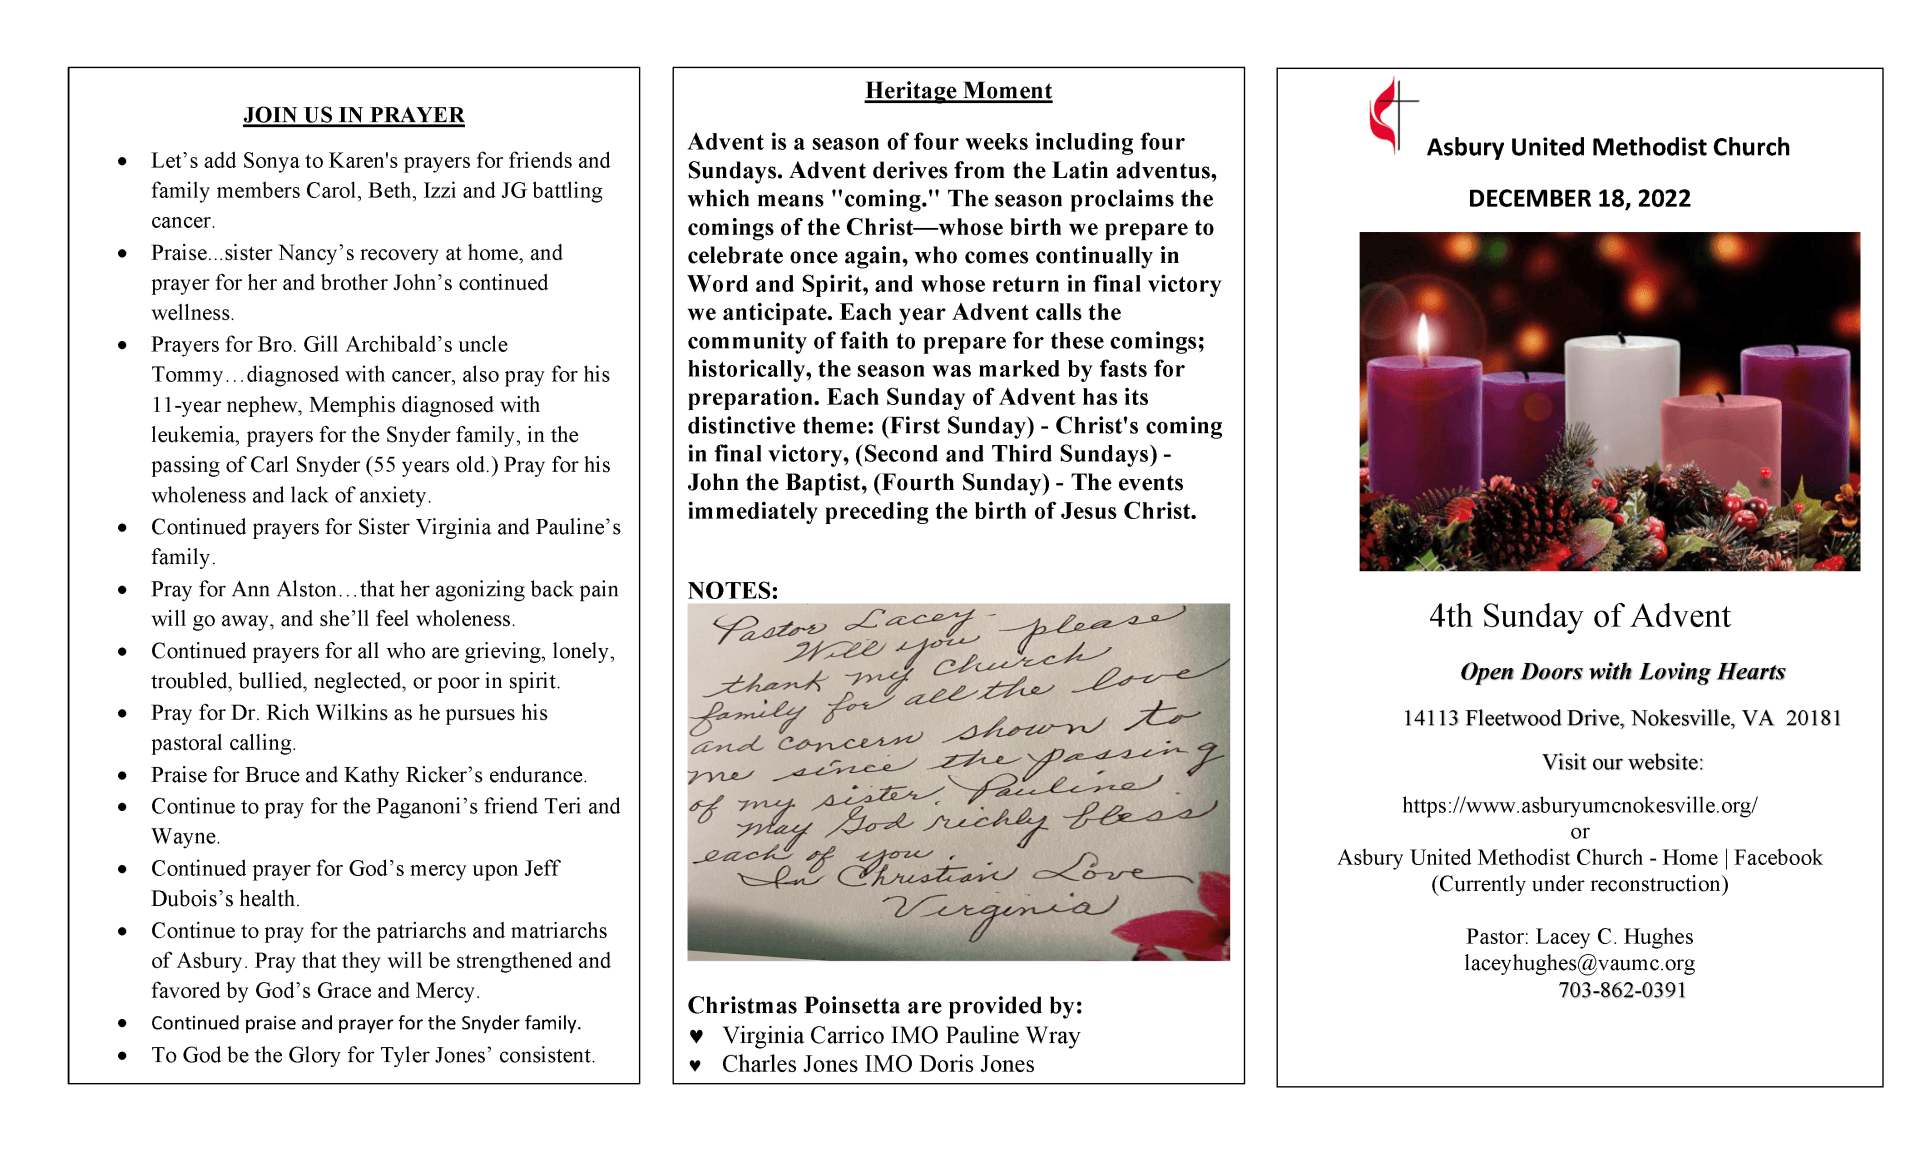 JOIN US IN PRAYER
• Let’s add Sonya to Karen's prayers for friends and
family members Carol, Beth, Izzi and JG battling
cancer.
• Praise...sister Nancy’s recovery at home, and
prayer for her and brother John’s continued
wellness.
• Prayers for Bro. Gill Archibald’s uncle
Tommy…diagnosed with cancer, also pray for his
11-year nephew, Memphis diagnosed with
leukemia, prayers for the Snyder family, in the
passing of Carl Snyder (55 years old.) Pray for his
wholeness and lack of anxiety.
• Continued prayers for Sister Virginia and Pauline’s
family.
• Pray for Ann Alston…that her agonizing back pain
will go away, and she’ll feel wholeness.
• Continued prayers for all who are grieving, lonely,
troubled, bullied, neglected, or poor in spirit.
• Pray for Dr. Rich Wilkins as he pursues his
pastoral calling.
• Praise for Bruce and Kathy Ricker’s endurance.
• Continue to pray for the Paganoni’s friend Teri and
Wayne.
• Continued prayer for God’s mercy upon Jeff
Dubois’s health.
• Continue to pray for the patriarchs and matriarchs
of Asbury. Pray that they will be strengthened and
favored by God’s Grace and Mercy.
• Continued praise and prayer for the Snyder family.
• To God be the Glory for Tyler Jones’ consistent.
Heritage Moment
Advent is a season of four weeks including four
Sundays. Advent derives from the Latin adventus,
which means "coming." The season proclaims the
comings of the Christ—whose birth we prepare to
celebrate once again, who comes continually in
Word and Spirit, and whose return in final victory
we anticipate. Each year Advent calls the
community of faith to prepare for these comings;
historically, the season was marked by fasts for
preparation. Each Sunday of Advent has its
distinctive theme: (First Sunday) - Christ's coming
in final victory, (Second and Third Sundays) -
John the Baptist, (Fourth Sunday) - The events
immediately preceding the birth of Jesus Christ.
NOTES:
Pastor Lacey-
Will you please
thank my Church
family for all the love
and concern shown to
me since the passing
of my sister, Pauline.
May God richly bless
each of you.
In Christian Love
Virginia
Christmas Poinsetta are provided by:
♥ Virginia Carrico IMO Pauline Wray
♥ Charles Jones IMO Doris Jones
Asbury United Methodist Church
DECEMBER 18, 2022
4th Sunday of Advent
Open Doors with Loving Hearts
14113 Fleetwood Drive, Nokesville, VA 20181
Visit our website:
https://www.asburyumcnokesville.org/
or
Asbury United Methodist Church - Home | Facebook
(Currently under reconstruction)
Pastor: Lacey C. Hughes
laceyhughes@vaumc.org
703-862-0391